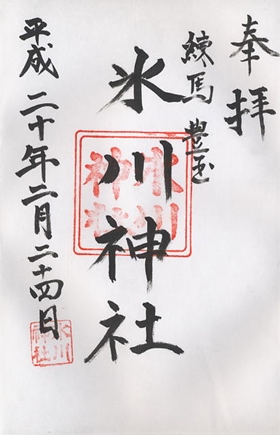 奉拝
練馬 豊玉
氷川神社
氷川神社
平成二十年二月二十四日
氷川神社